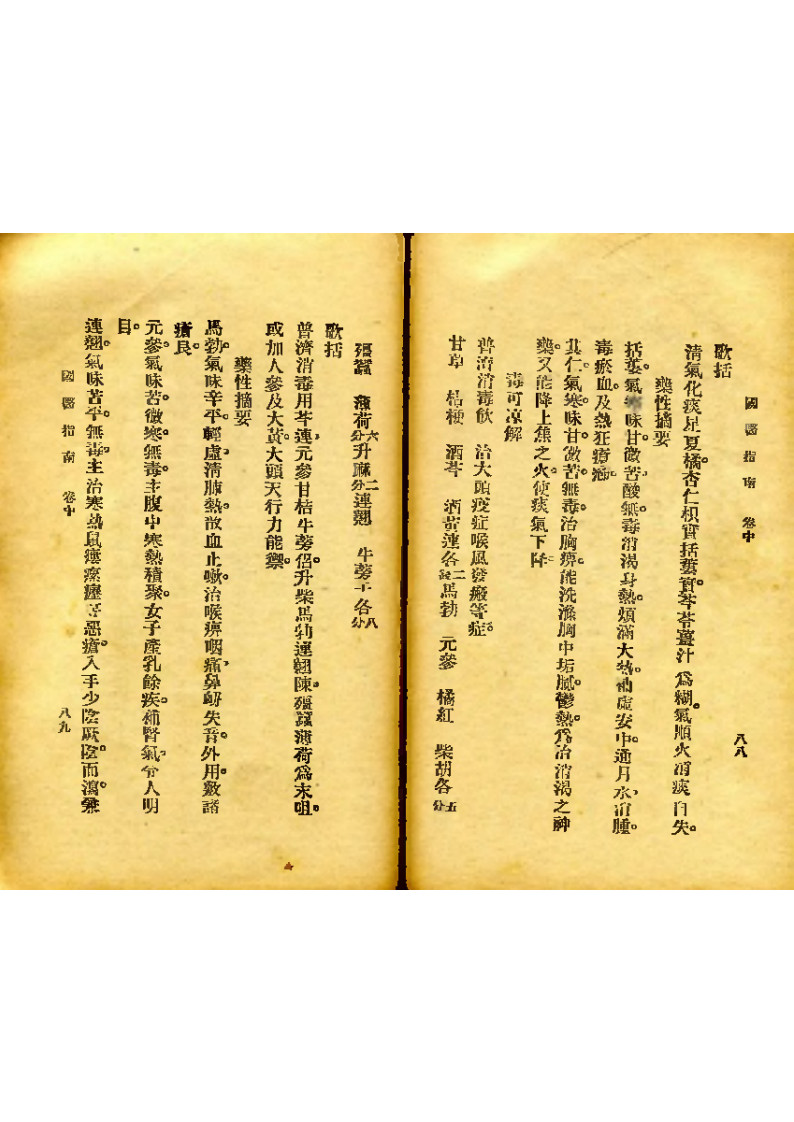 國醫指南 卷中
八八
歌括
清氣化痰星夏橘。杏仁枳實括蔞實。芩苓薑汁為糊。氣順火消痰自失。
藥性摘要
括蔞。氣寒味甘微苦酸。無毒消渴身熱。煩滿大熱。補虛安中。通月水,消腫
毒瘀血。及熱狂瘡癤。
其仁。氣寒味甘微苦無毒。治胸痹。能洗滌胸中垢膩。鬱熱。為治消渴之神
藥。又能降上焦之火。使痰氣下降。
毒可涼解
普濟消毒飲 治大頭疫症喉風發癍等症。
甘草 桔梗 酒芩 酒黃連各二錢馬勃 元參 橘紅 柴胡各五分
殭蠶 薄荷六分升麻二分連翹 牛蒡子各八分
歌括
普濟消毒用芩連,元參甘桔牛蒡侶。升柴馬勃連翹陳。殭蠶薄荷為末咀。
或加人參及大黃。大頭天行力能禦。
藥性摘要
馬勃。氣味辛平。輕虛清肺熱。散血止嗽。治喉痹咽痛,鼻衄失音。外用敷諸
瘡良。
元參氣味苦。微寒。無毒主腹中寒熱積聚。女子產乳餘疾。補腎氣。令人明
目。
連翹。氣味苦平。無毒。主治寒熱鼠瘻瘰癧等惡瘡。入手少陰厥陰。而瀉。兼
國醫指南 卷中
八九